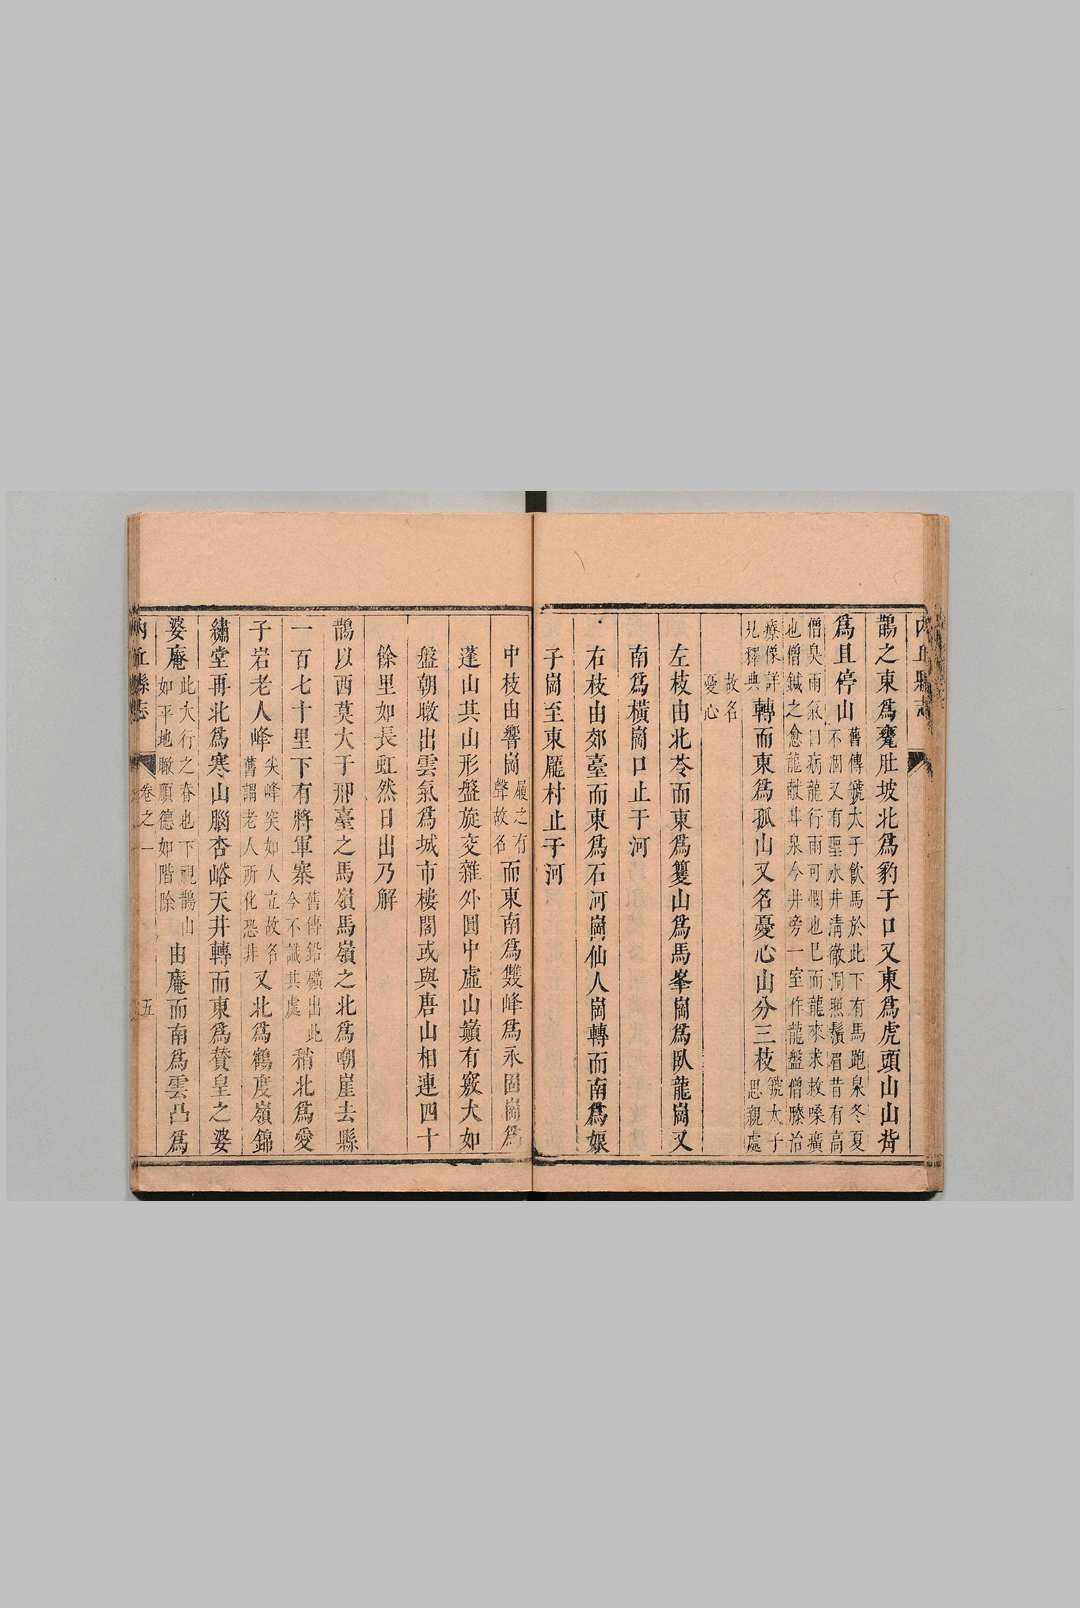 鵲之東爲甕肚坡北爲豹子口又東爲虎頭山山背
爲且停山舊傳虢太子飲馬於此下有馬跑泉冬夏
不涸又有聖水井清徹洞照鬚眉昔有高
僧臭雨氣曰病龍行雨可憫也已而龍來求救嗓癀
也僧鍼之愈龍獻井泉今井傍一室作龍盤僧滕治
療像詳
見釋典轉而東爲孤山又名憂心山分三枝虢太子
思親處
故名
憂心
左枝由北苓而東爲雙山爲馬峯崗爲臥龍崗又
南爲橫崗口止于河
右枝由郊臺而東爲石河崗仙人崗轉而南爲娘
子崗至東龎村止于河
中枝由響崗履之有
聲故名而東南爲雙峰爲永固崗爲
蓬山其山形盤旋交雜外圓中虛山巔有竅大如
盤朝暾出雲氣爲城市樓閣或與唐山相連四十
餘里如長虹然日出乃解
鵲以西莫大于邢臺之馬嶺馬嶺之北爲嘲崖去縣
一百七十里下有將軍寨舊傳鉛礦出此
今不識其處稍北爲愛
子岩老人峰尖峰突如人立故名
舊謂老人所化恐非又北爲鶴度嶺錦
繡堂再北爲寒山腦杏峪天井轉而東爲贊皇之婆
婆庵此大行之脊也下視鵲山
如平地瞰順德如階除由庵而南爲雲凸爲
內丘縣志
卷之一
五